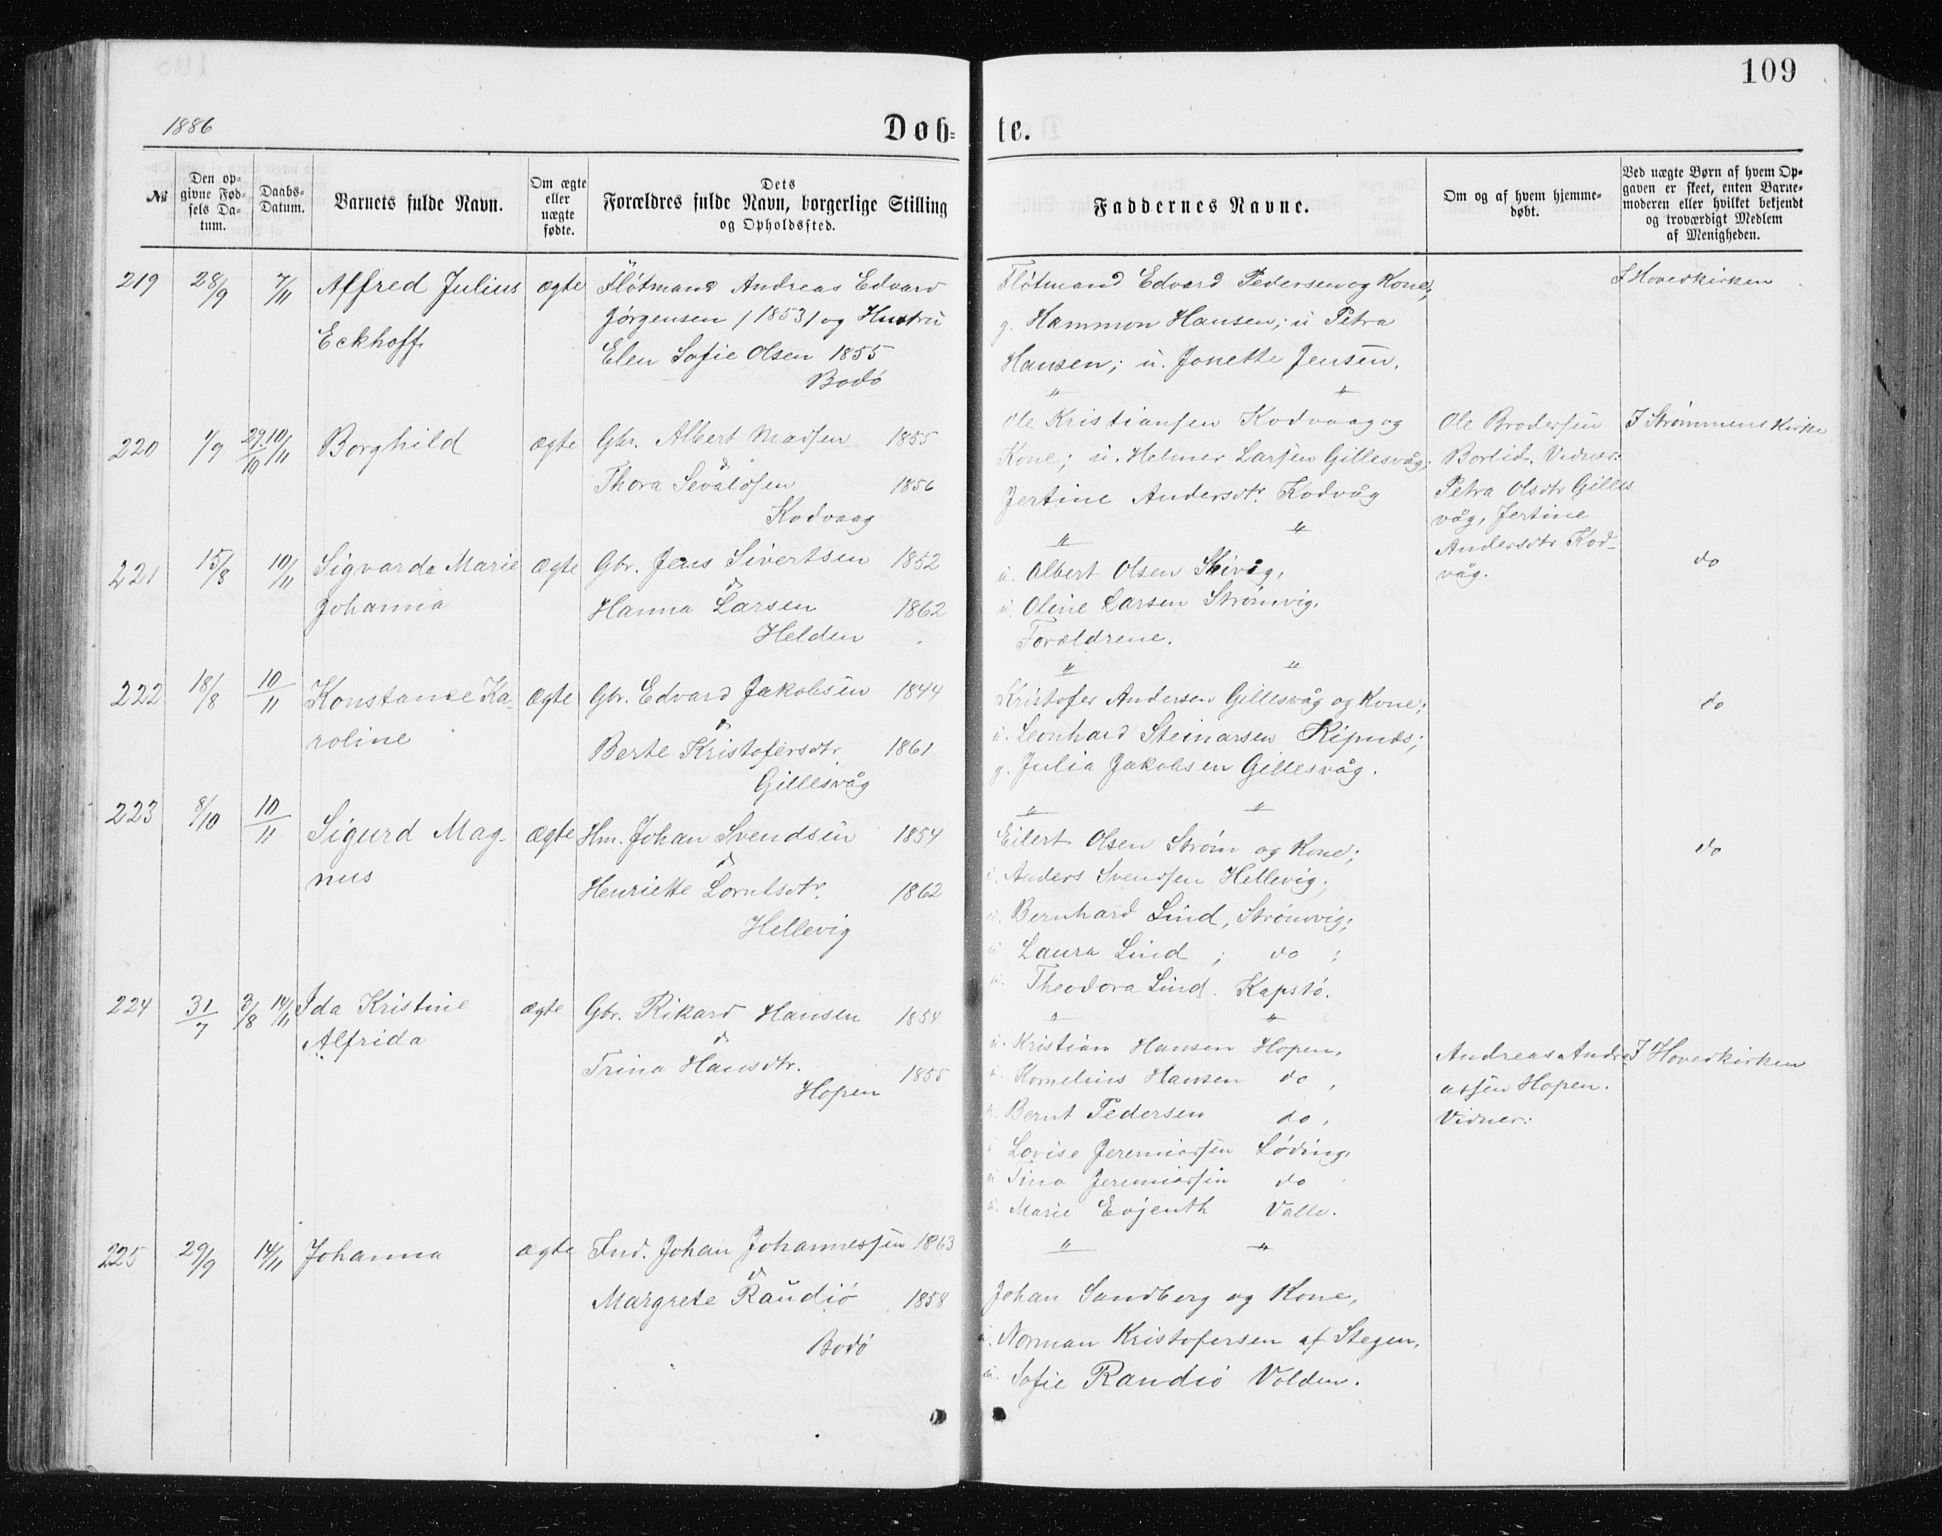 109
1886
Døb-
te.
№
Den op-
givne Fød-
sels Da-
tum.
Daabs-
Datum.
Barnets fulde Navn.
Om ægte
eller
uægte
fødte.
Dets
Forældres fulde Navn, borgerlige Stilling
og Opholdssted.
Faddernes Navne.
Om og af hvem hjemme-
døbt.
Ved uægte Børn af hvem Op-
gaven er skeet, enten Barne-
moderen eller hvilket bekjendt
og troværdigt Medlem
af Menigheden.
219 28/9 7/11 Alfred Julius
Eckhoff.
ægte
Fløtmand Andreas Edvard
Jørgensen (1853) og Hustru
Elen Sofie Olsen 1855
Bodø
Fløtmand Edvard Pedersen og Kone;
g. Hammon Hansen; u Petra
Hansen; u. Jonette Jensen.
I Hovedkirken
220 1/9 29/10 10/11 Borghild
ægte
Gbr. Albert Madsen 1855
&
Thora Sevaldsen 1856
Kodvaag
Ole Kristiansen Kodvaag og
Kone; u. Helmer Larsen Gillesvåg;
Jertine Andersdtr. Kodvåg
Ole Brodersen
Borlid. Vidner:
Petra Olsdtr Gilles
våg, Jertine
Andersdtr Kod-
våg.
I Strømmens Kirke
221 15/8 10/11 Sigvarda Marie
Johanna
ægte
Gbr. Jens Sivertsen 1852
&
Hanna Larsen 1862
Helden
u. Albert Olsen Skivåg,
u. Oline Larsen Strømvig,
Forældrene.
do
222 18/8 10/11 Konstanse Ka-
roline
ægte
Gbr. Edvard Jakobsen 1844
&
Berte Kristofersdtr. 1861
Gillesvåg
Kristofer Andersen Gillesvåg og Kone;
u. Leonhard Steinarsen Ripnes;
g. Julia Jakobsen Gillesvåg.
do
223 8/10 10/11 Sigurd Mag-
nus
ægte
Hm. Johan Svendsen 1854
&
Henriette Lorntsdtr. 1862
Hellevig
Eilert Olsen Strøm og Kone;
u. Anders Svendsen Hellevig;
u. Bernhard Lind, Strømvig;
u Laura Lind ; do ;
u. Theodora Lind. Kapstø.
do
224 31/7 3/8 14/11 Ida Kristine
Alfrida
ægte
Gbr. Rikard Hansen 1854
&
Trina Hansdtr. 1855
Hopen
u. Kristian Hansen Hopen,
u. Kornelius Hansen do ,
Bernt Pedersen do ,
Lovise Jeremiassen Løding,
u Tina Jeremiassen do
u. Marie Evjenth Valle.
Andreas Andre
assen Hopen.
Vidner:
I Hovedkirken
225 29/9 14/11 Johanna
ægte
Ind. Johan Johannessen 1863
&
Margrete Raudiø 1858
Bodø
Johan Sandberg og Kone,
u. Norman Kristofersen af Stegen,
u. Sofie Raudiø Volden.